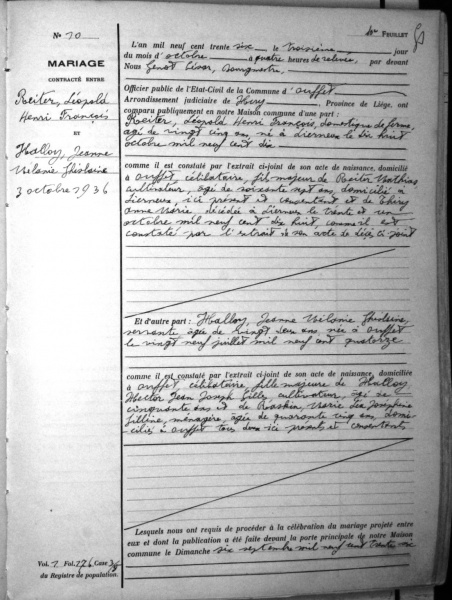 No 70
4me FEUILLET
MARIAGE
CONTRACTÉ ENTRE
Reiter, Léopold
Henri François
ET
Halloy, Jeanne
Mélanie Ghislaine
3 octobre 1936
L'an mil neuf cent trente six le troisième jour
du mois d'octobre à quatre heures de relevée, par devant
Nous Genot César, bourgmestre,
Officier public de l'Etat-Civil de la Commune d'Ouffet
Arrondissement judiciaire de Huy, Province de Liége, ont
comparu publiquement en notre Maison commune d'une part :
Reiter, Léopold Henri François, domestique de ferme,
âgé de vingt cinq ans, né à Lierneux le dix huit
octobre mil neuf cent dix
comme il est constaté par l'extrait ci-joint de son acte de naissance, domicilié
à Ouffet célibataire, fils majeur de Reiter Mathias
cultivateur, âgé de soixante sept ans, domicilié à
Lierneux, ici présent et consentant et de Thiry
Anne Marie, décédée à Lierneux le trente et un
octobre mil neuf cent dix huit, comme il est
constaté par l'extrait de son acte de décès ci-joint
Et d'autre part : Halloy, Jeanne Mélanie Ghislaine,
servante, âgée de vingt deux ans, née à Ouffet
le vingt neuf juillet mil neuf cent quatorze
comme il est constaté par l'extrait ci-joint de son acte de naissance, domiciliée
à Ouffet célibataire, fille majeure de Halloy
Hector Jean Joseph Gilles, cultivateur, âgé de
cinquante ans et de Raskin, Marie Léa Joséphine
ménagère, âgée de quarante cinq ans, domi-
ciliés à Ouffet tous deux ici présents et consentants
Lesquels nous ont requis de procéder à la célébration du mariage projeté entre
eux et dont la publication a été faite devant la porte principale de notre Maison
commune le Dimanche six septembre mil neuf cent trente six
Vol. 2 Fol. 126 Case
du Registre de population.